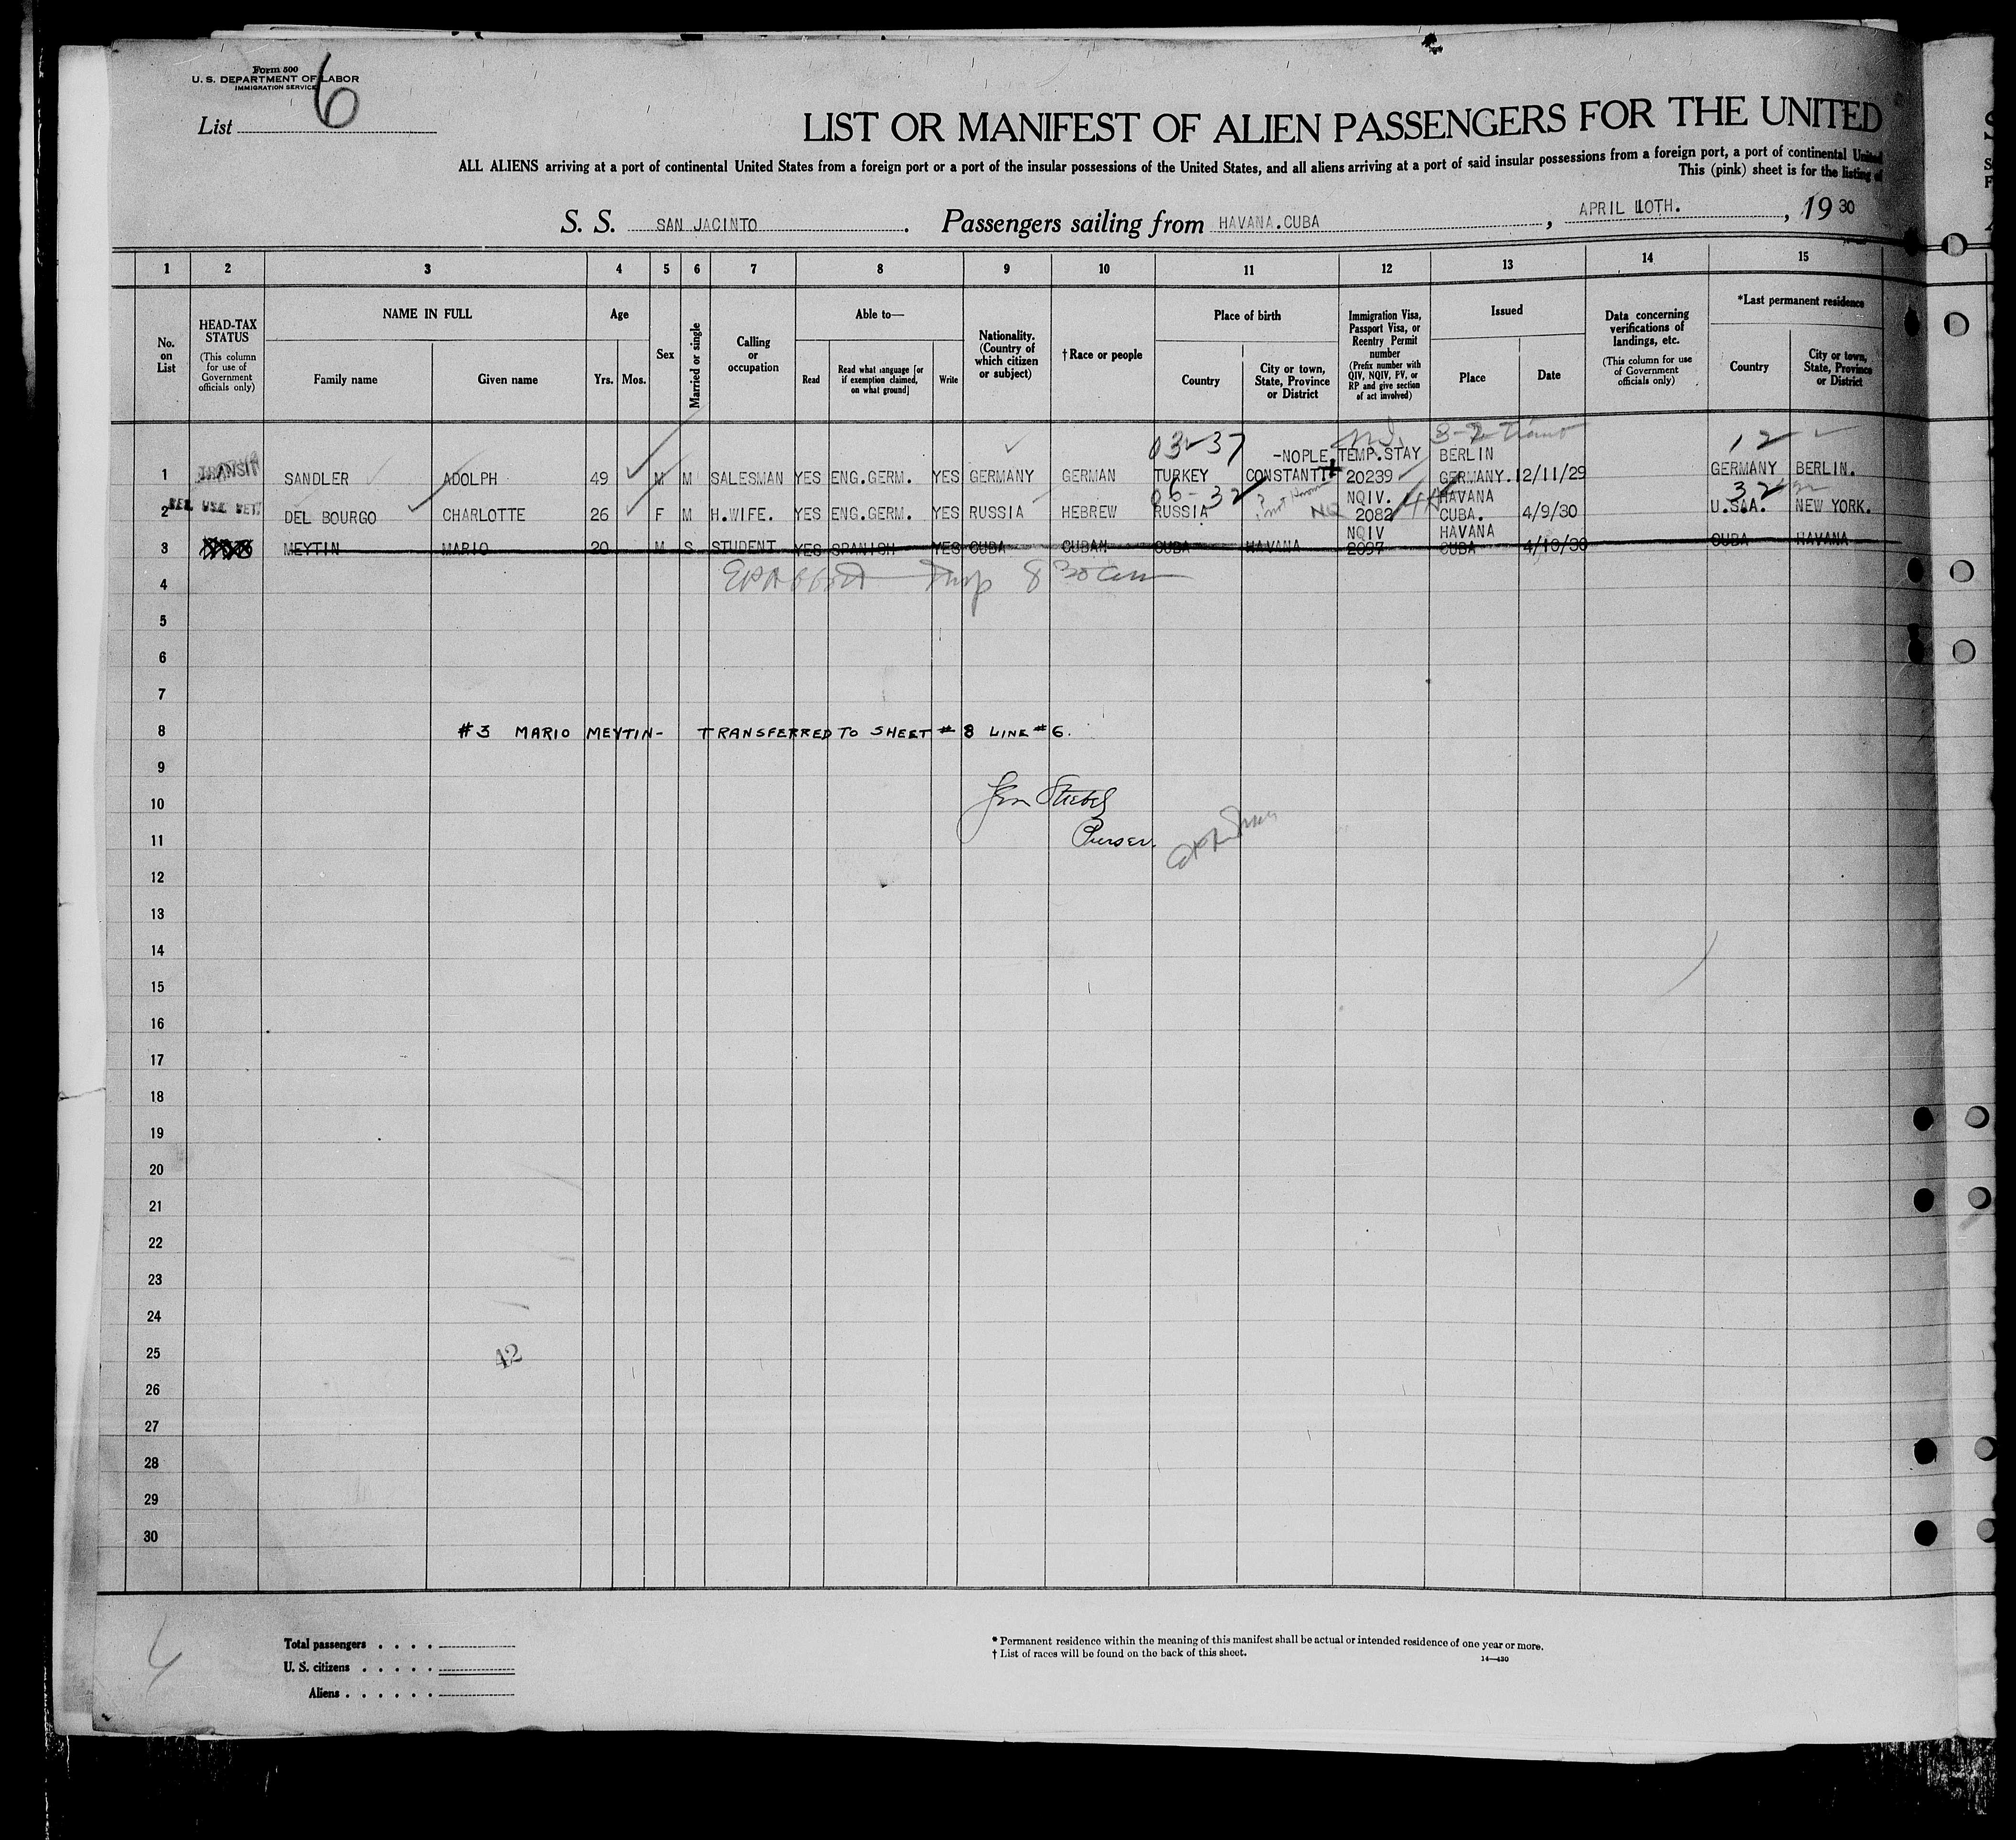 Form 500
U. S. DEPARTMENT OF LABOR
IMMIGRATION SERVICE
List 6
LIST OR MANIFEST OF ALIEN PASSENGERS FOR THE UNITED
ALL ALIENS arriving at a port of continental United States from a foreign port or a port of the insular possessions of the United States, and all aliens arriving at a port of said insular possessions from a foreign port, a port of continental United
This (pink) sheet is for the listing of
S. S. SAN JACINTO. Passengers sailing from HAVANA.CUBA, APRIL 10TH., 1930
1 2 3 4 5 6 7 8 9 10 11 12 13 14 15
No. on List
HEAD-TAX STATUS
(This column for use of Government officials only)
NAME IN FULL
Family name
Given name
Age
Yrs. Mos.
Sex
Married or single
Calling or occupation
Able to—
Read
Read what language [or if exemption claimed, on what ground]
Write
Nationality. (Country of which citizen or subject)
† Race or people
Place of birth
Country
City or town, State, Province or District
Immigration Visa, Passport Visa, or Reentry Permit number
(Prefix number with QIV, NQIV, PV, or RP and give section of act involved)
Issued
Place
Date
Data concerning verifications of landings, etc.
(This column for use of Government officials only)
*Last permanent residence
Country
City or town, State, Province or District
03-37 3-2 Transit 12
-NOPLE TEMP.STAY BERLIN
1 TRANSIT SANDLER ADOLPH 49 M M SALESMAN YES ENG.GERM. YES GERMANY GERMAN TURKEY CONSTANTI 20239 GERMANY. 12/11/29 GERMANY BERLIN.
06-32 NQIV. HAVANA 32
2 DEL BOURGO CHARLOTTE 26 F M H.WIFE. YES ENG.GERM. YES RUSSIA HEBREW RUSSIA ? not known NQ 2082 4A CUBA. 4/9/30 U.SAA. NEW YORK.
NQIV HAVANA
3 MEYTIN MARIO 20 M S STUDENT YES SPANISH YES CUBA CUBAN CUBA HAVANA 2097 CUBA 4/10/30 CUBA HAVANA
4 8 30 am
5
6
7
8 #3 MARIO MEYTIN- TRANSFERRED TO SHEET # 8 LINE # 6.
9
10
11 Purser.
12
13
14
15
16
17
18
19
20
21
22
23
24
25 42
26
27
28
29
30
Total passengers . . . .
U. S. citizens . . . . .
Aliens . . . . . .
* Permanent residence within the meaning of this manifest shall be actual or intended residence of one year or more.
† List of races will be found on the back of this sheet.
14—430
4